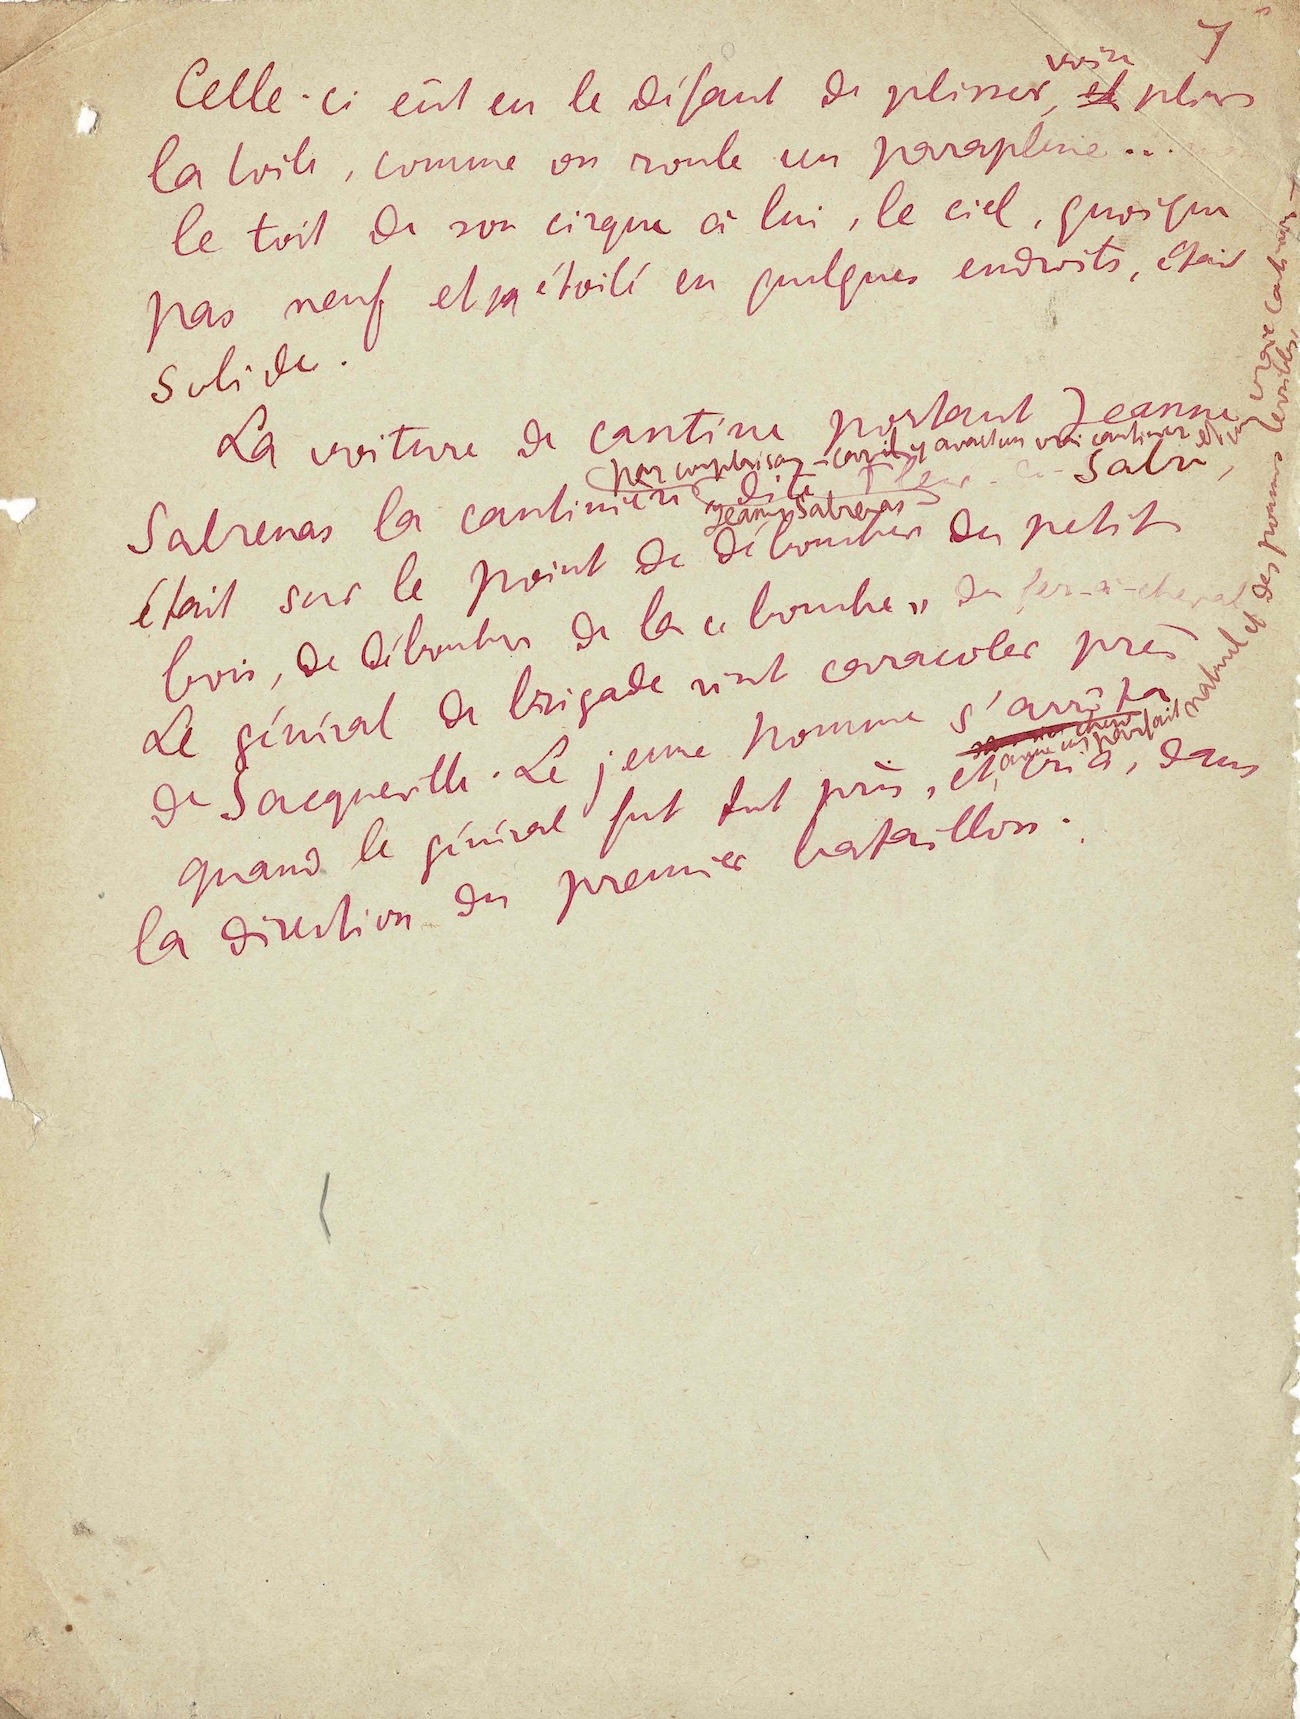 7
voire
Celle-ci eût eu le défaut de plisser, et plier
la toile, comme on roule un parapluie...
le toit de son cirque à lui, le ciel, quoique
pas neuf et étoilé en quelques endroits, était
solide.
La voiture de cantine portant Jeanne
par comparaison car il y avait un vrai cantinier et une vraie cantinière
Sabrenas la cantinière, dite Fleur-de-Sabre,
Jeanne Sabrenas
était sur le point de déboucher du petit
bois, de déboucher de la « bombe » du fer-à-cheval
Le général de brigade vint caracoler près
de Sacqueville. Le jeune homme s'arrêta
avec un parfait naturel et des poumons terribles,
quand le général fut tout près, et, cria, dans
la direction du premier bataillon.